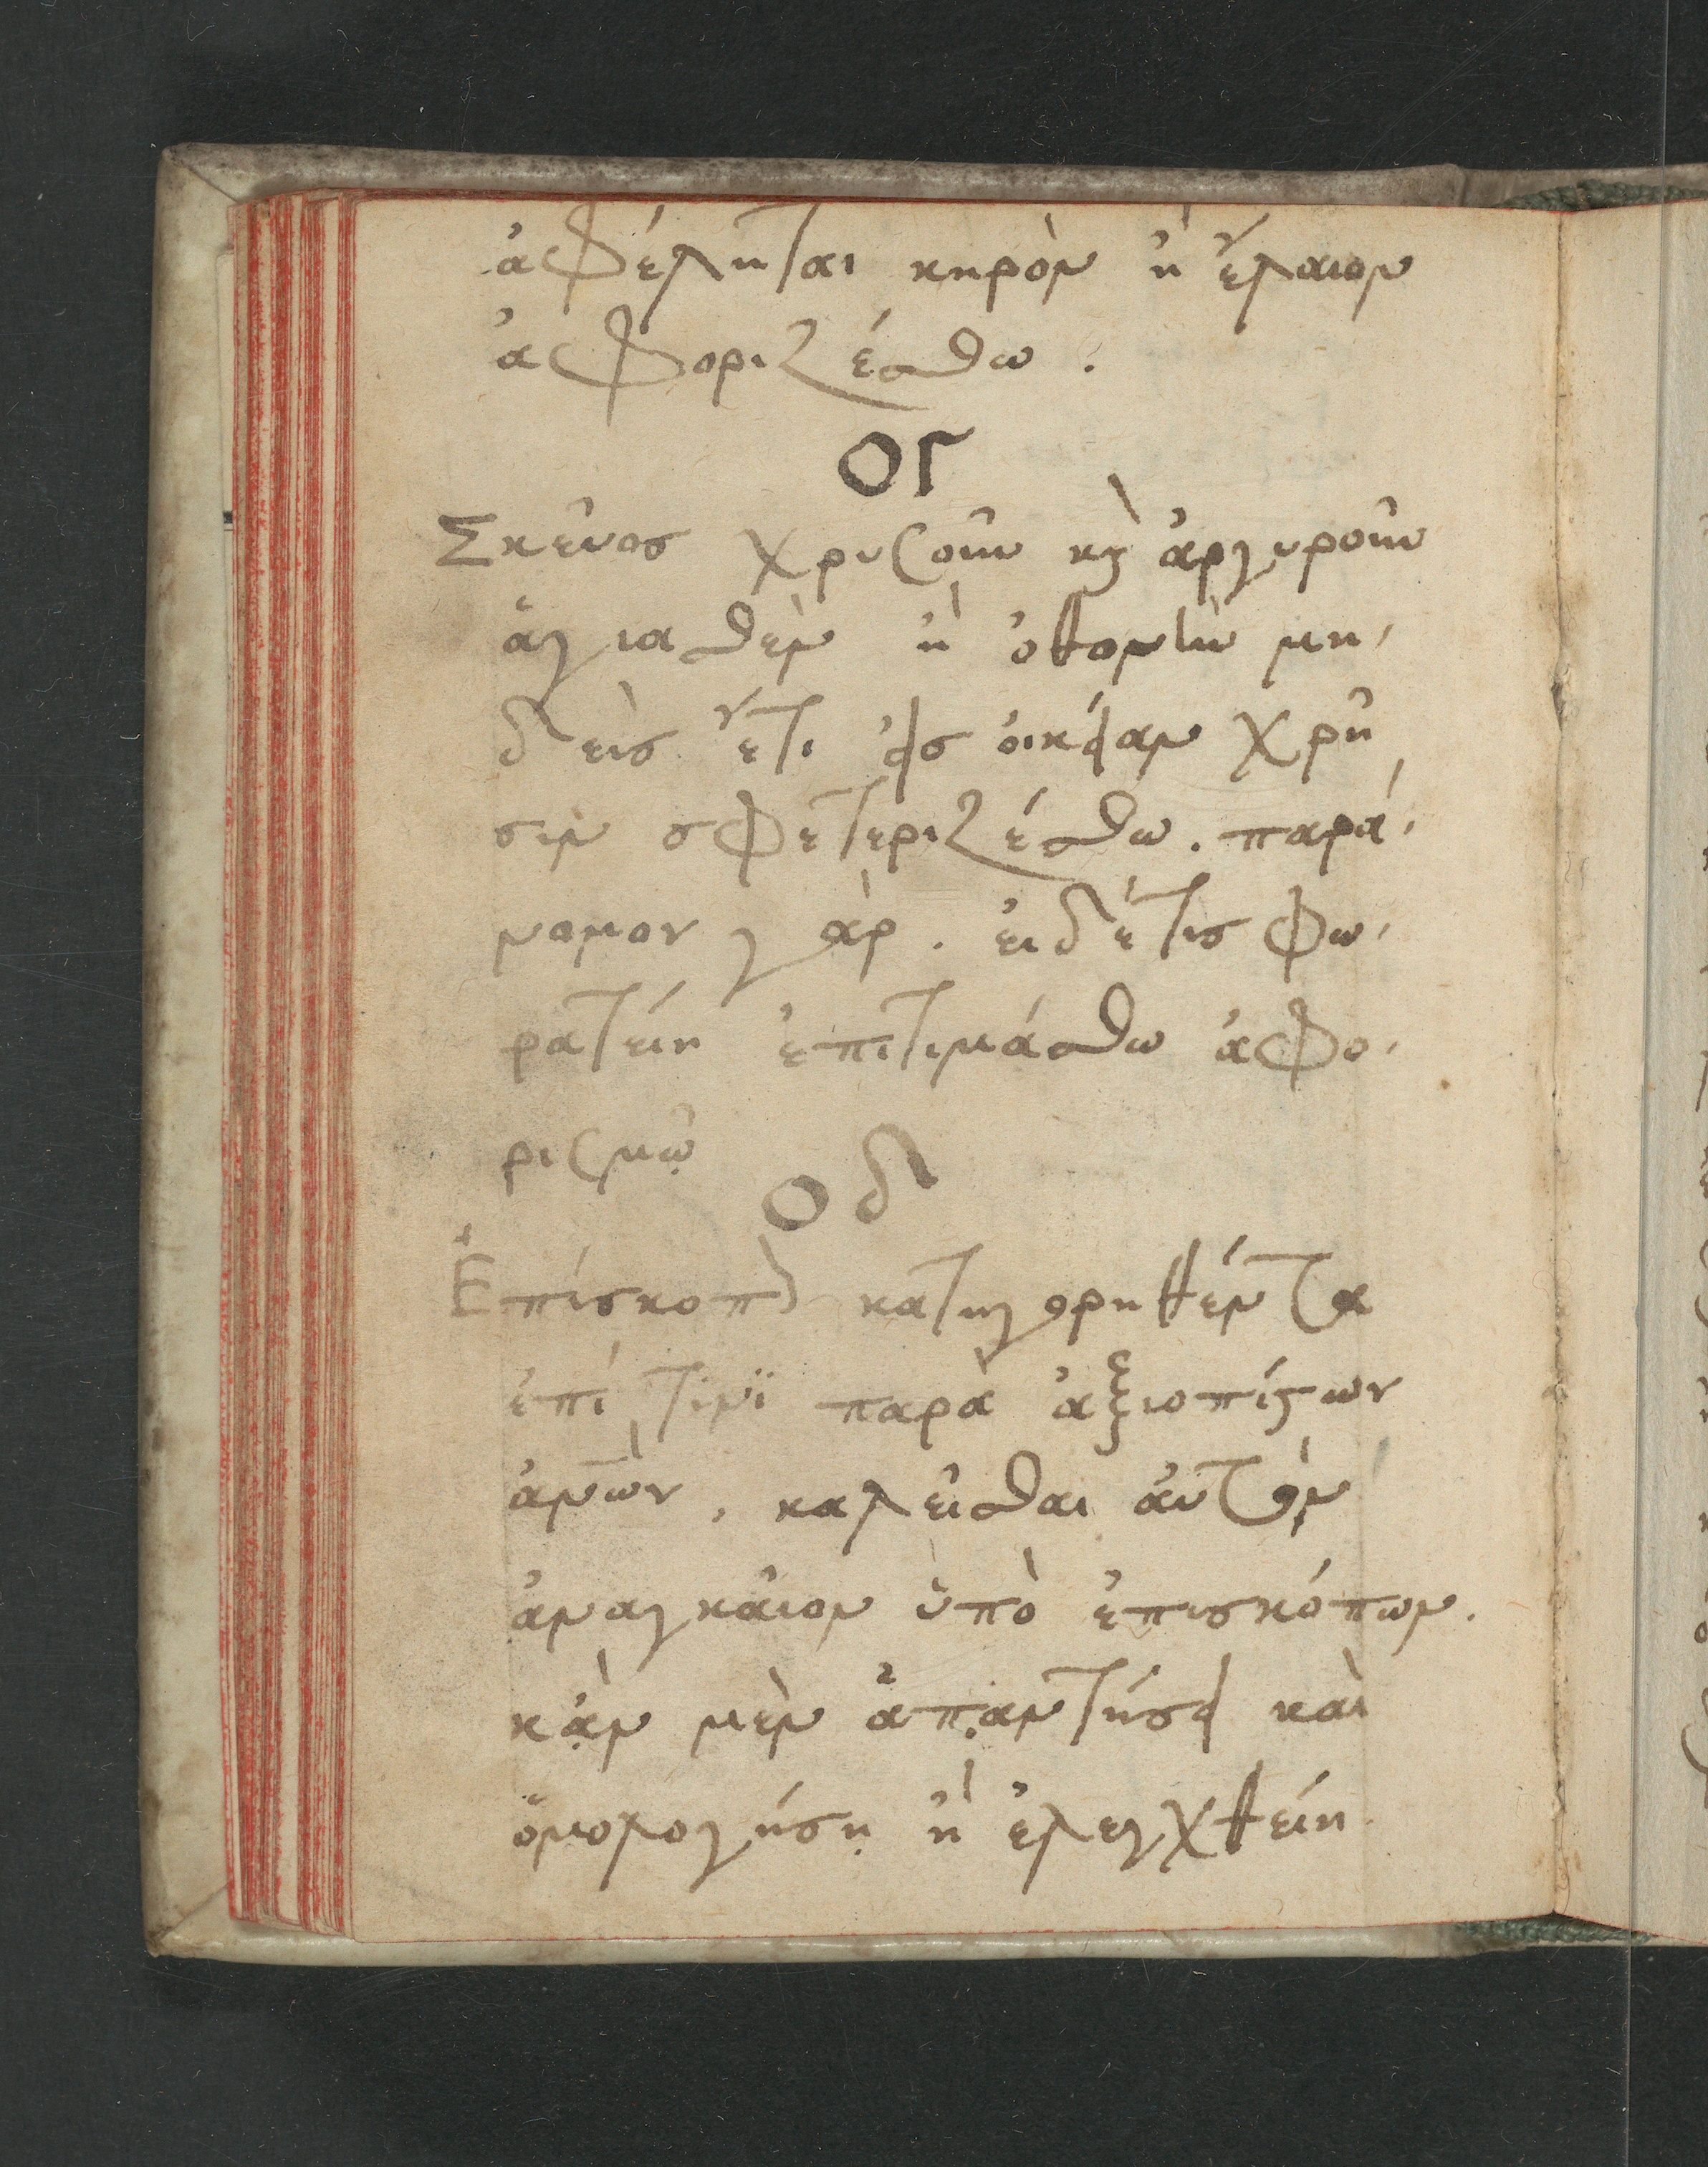 ἀφέληται κηρὸν ἢ ἔλαιον
ἀφοριζέσθω.
ΟΓ
Σκεῦος χρυσοῦν κὶ ἀργυροῦν
ἁγιασθὲν ἢ ὀθονὴν μη,
δεὶς ἔτι εἰς οἰκείαν χρῆ
σιν σφετεριζέσθω. παρά,
νομον γὰρ. εἰδέτις φω,
ραθείη ἐπιτιμάσθω ἀφο,
ρισμῷ
οδ
Ἐπίσκοπὸν κατηγορηθέντα
ἐπί τινϊ παρὰ ἀξιοπίστων
ἀνων̅, καλεῖσθαι ἀυτὸν
ἀναγκᾶιον ὑπὸ ἐπισκόπων.
κἂν μὲν ἀπαντήσει καὶ
ὁμολογήσῃ ἢ ἐλεγχθείη